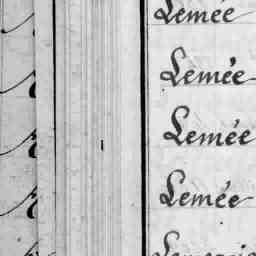 Lemée
Lemée
Lemée
Lemée